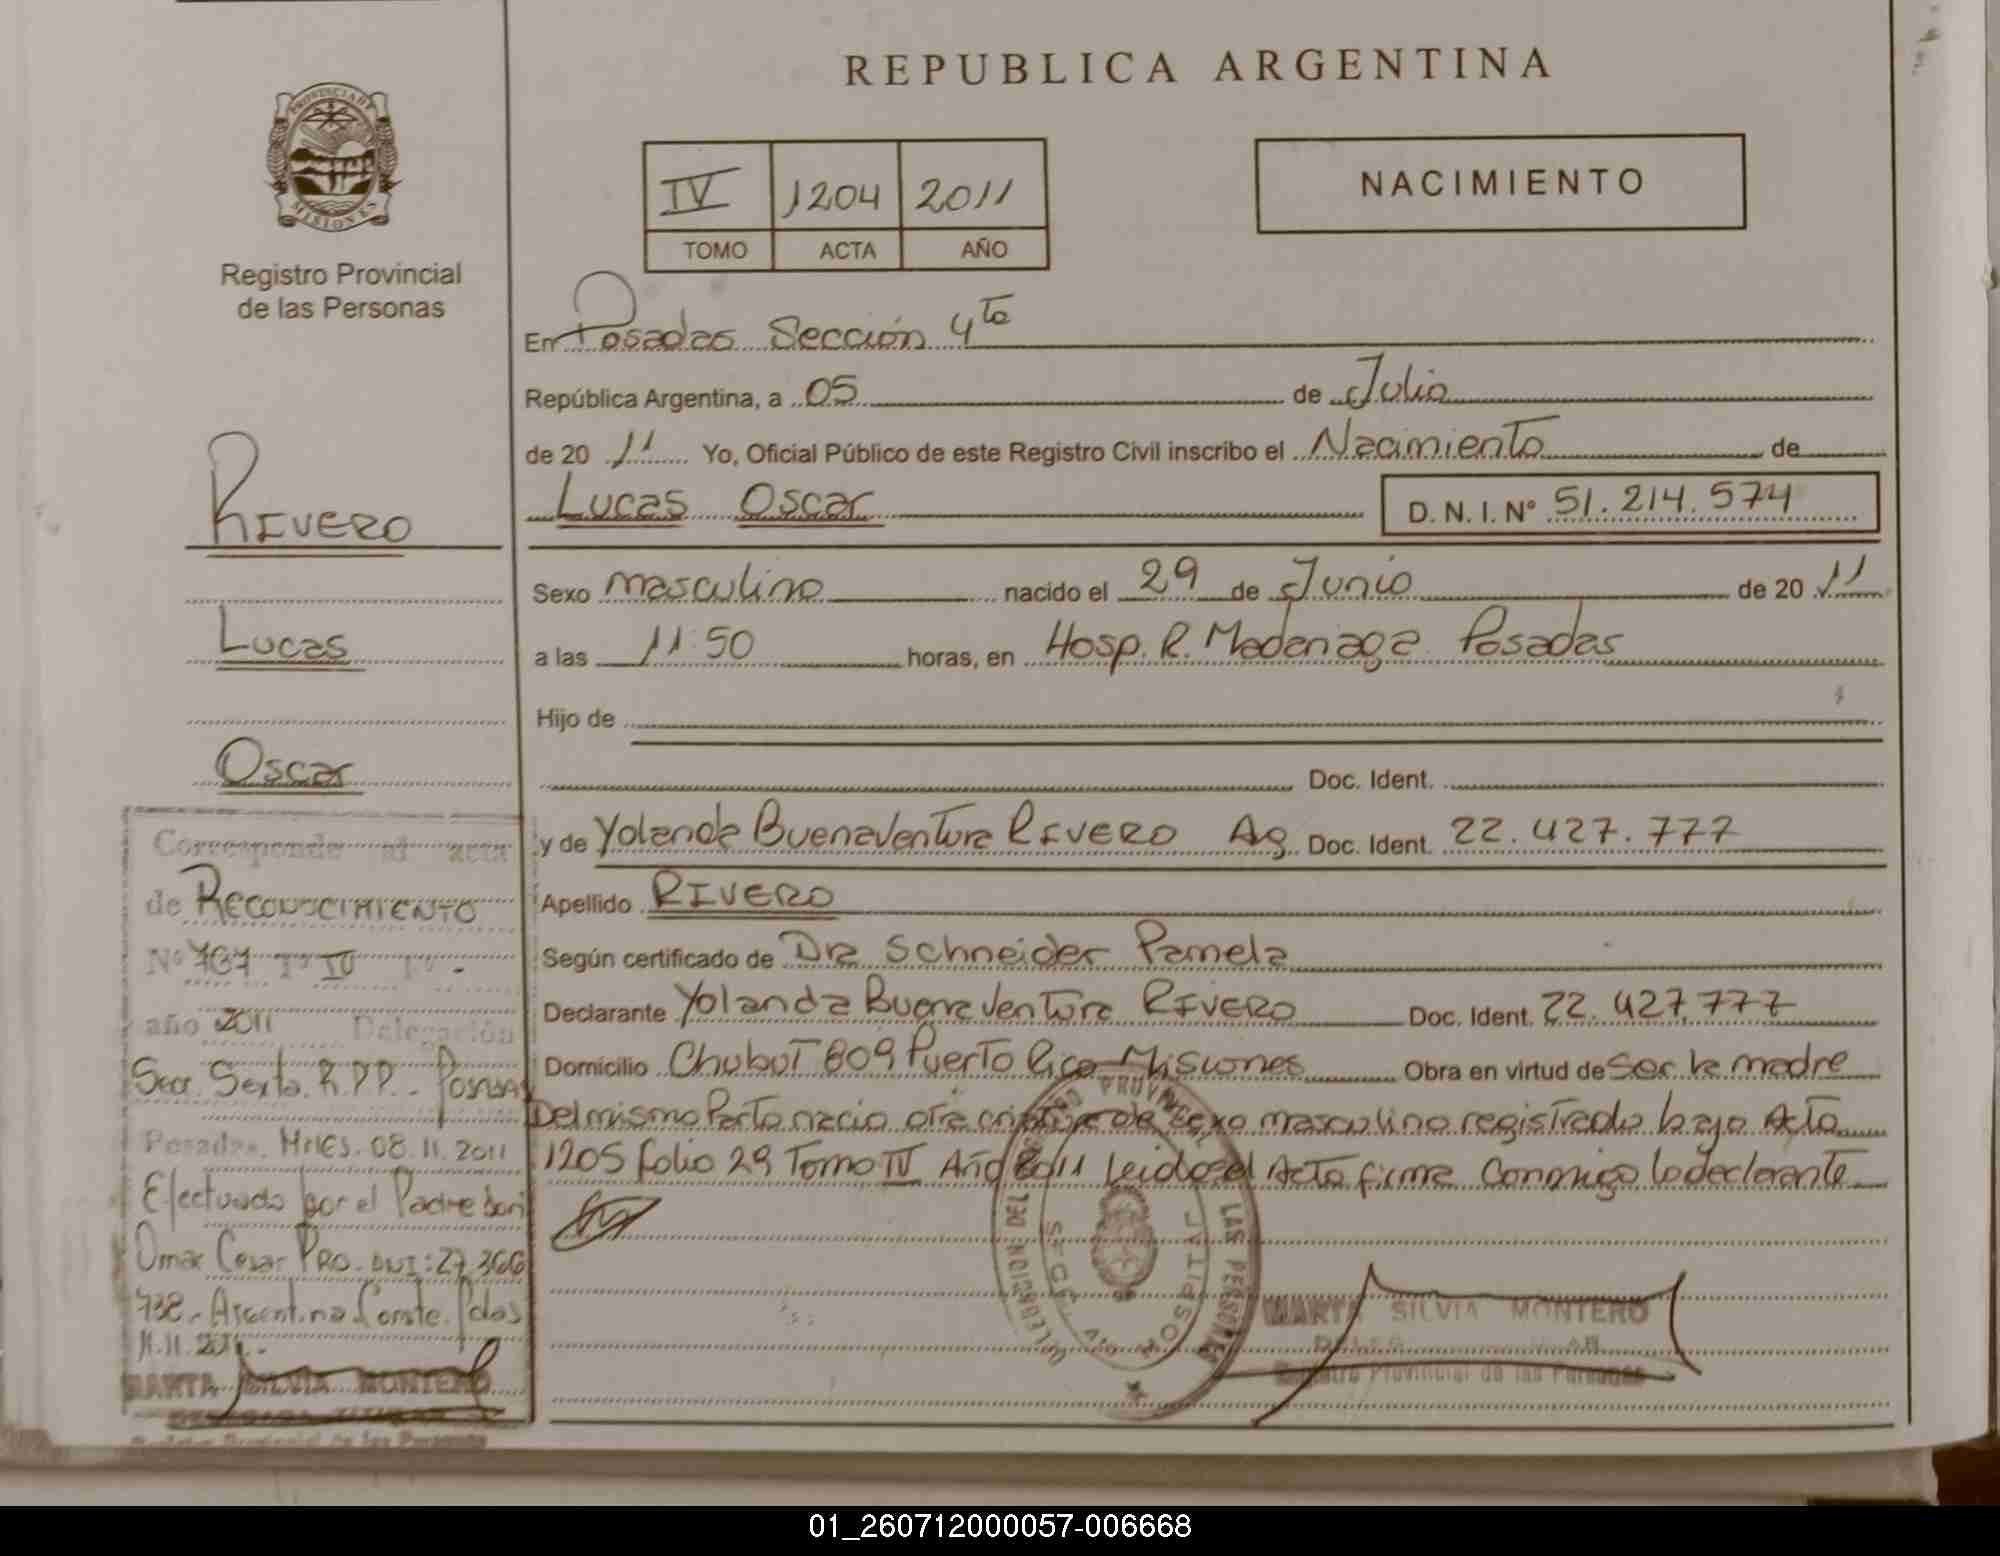 REPUBLICA ARGENTINA
PROVINCIA DE
MISIONES
Registro Provincial
de las Personas
IV 1204 2011
TOMO ACTA AÑO
NACIMIENTO
En Posadas Sección 4ta
República Argentina, a 05 de Julio
de 20 11 Yo, Oficial Público de este Registro Civil inscribo el Nacimiento de
Lucas Oscar D. N. I. Nº 51.214.574
Sexo masculino nacido el 29 de Junio de 20 11
a las 11:50 horas, en Hosp. R. Madariaga Posadas
Hijo de
Doc. Ident.
y de Yolanda Buenaventura RIVERO Ag. Doc. Ident. 22.427.777
Apellido RIVERO
Según certificado de Dra Schneider Pamela
Declarante Yolanda Buenaventura RIVERO Doc. Ident. 22.427.777
Domicilio Chubut 809 Puerto Rico Misiones Obra en virtud de Ser la madre
Del mismo Parto nacio otra criatura de sexo masculino registrado bajo Acta
1205 folio 29 Tomo IV Año 2011 Leida el Acta firma conmigo la declarante
MARTA SILVIA MONTERO
Registro Provincial de las Personas
RIVERO
Lucas
Oscar
Corresponde al acta
de RECONOCIMIENTO
Nº 767 Tº IV Fº -
año 2011 Delegación
Secc. Sexta. R.P.P. - POSADAS
Posadas, Mnes. 08.11.2011
Efectuado por el Padre
Omar Cesar PRO. DNI: 27.366
738 - Argentina. Conste. Pdas
11.11.2011.
MARTA SILVIA MONTERO
Registro Provincial de las Personas
01_260712000057-006668